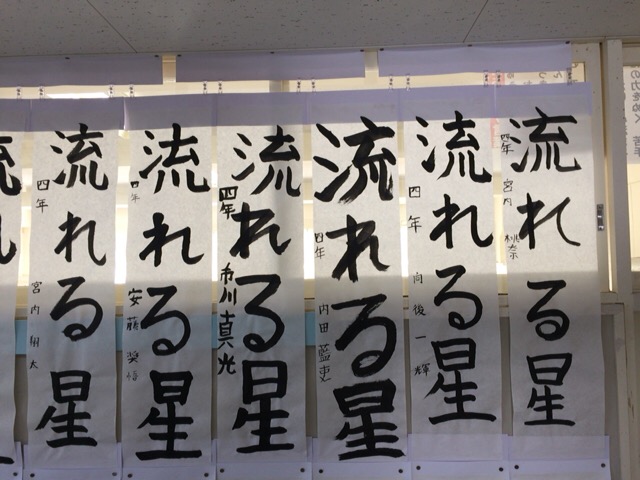 流れる星
四年 宮内 桃奈
流れる星
四年 向後一輝
流れる星
四年 内田藍吏
流れる星
四年 市川真光
流れる星
四年 安藤奨悟
流れる星
四年 宮内翔太